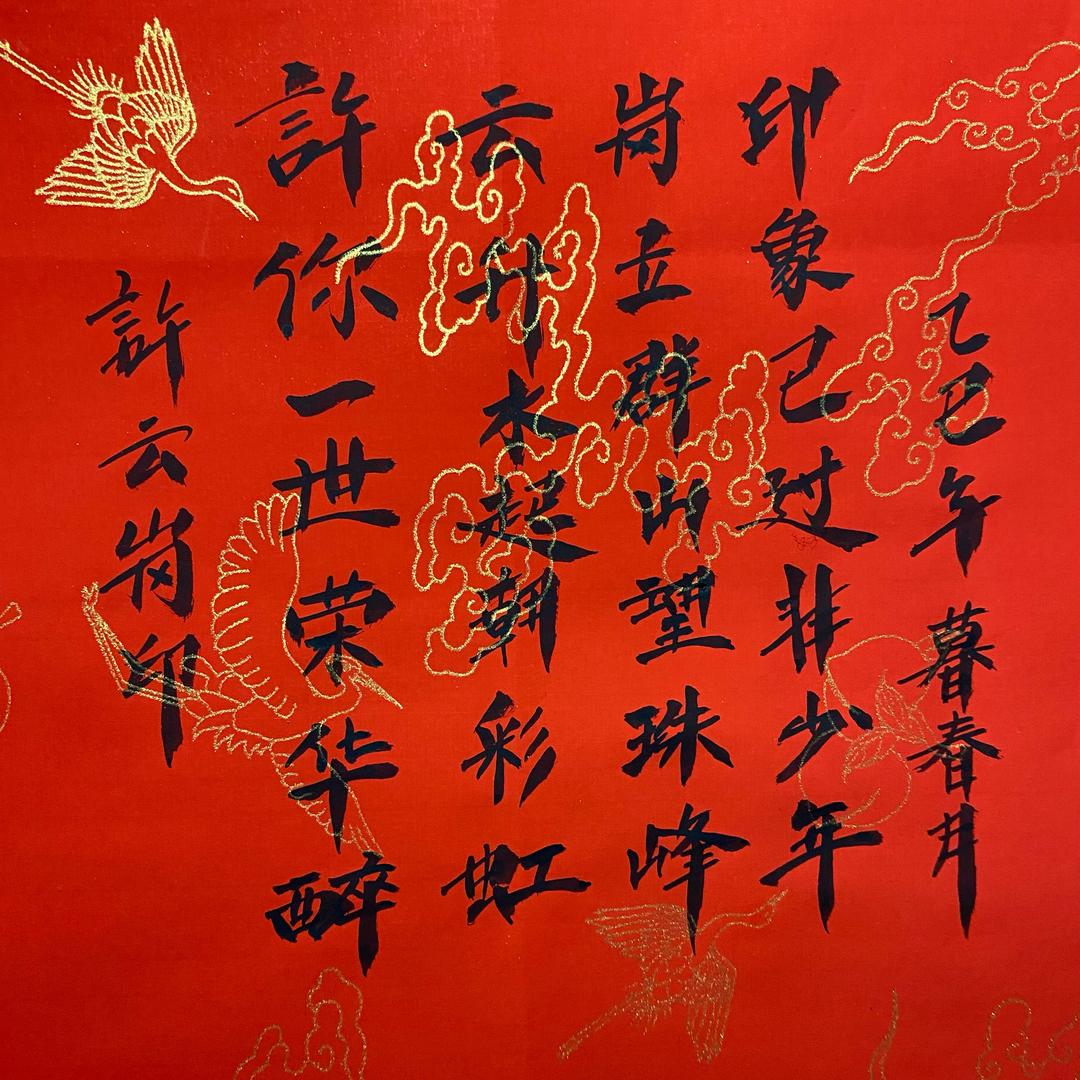 乙巳年 暮春
印象已过非少年
岗立群山望珠峰
云升水起朝彩虹
許你一世荣华醉
許云岗印